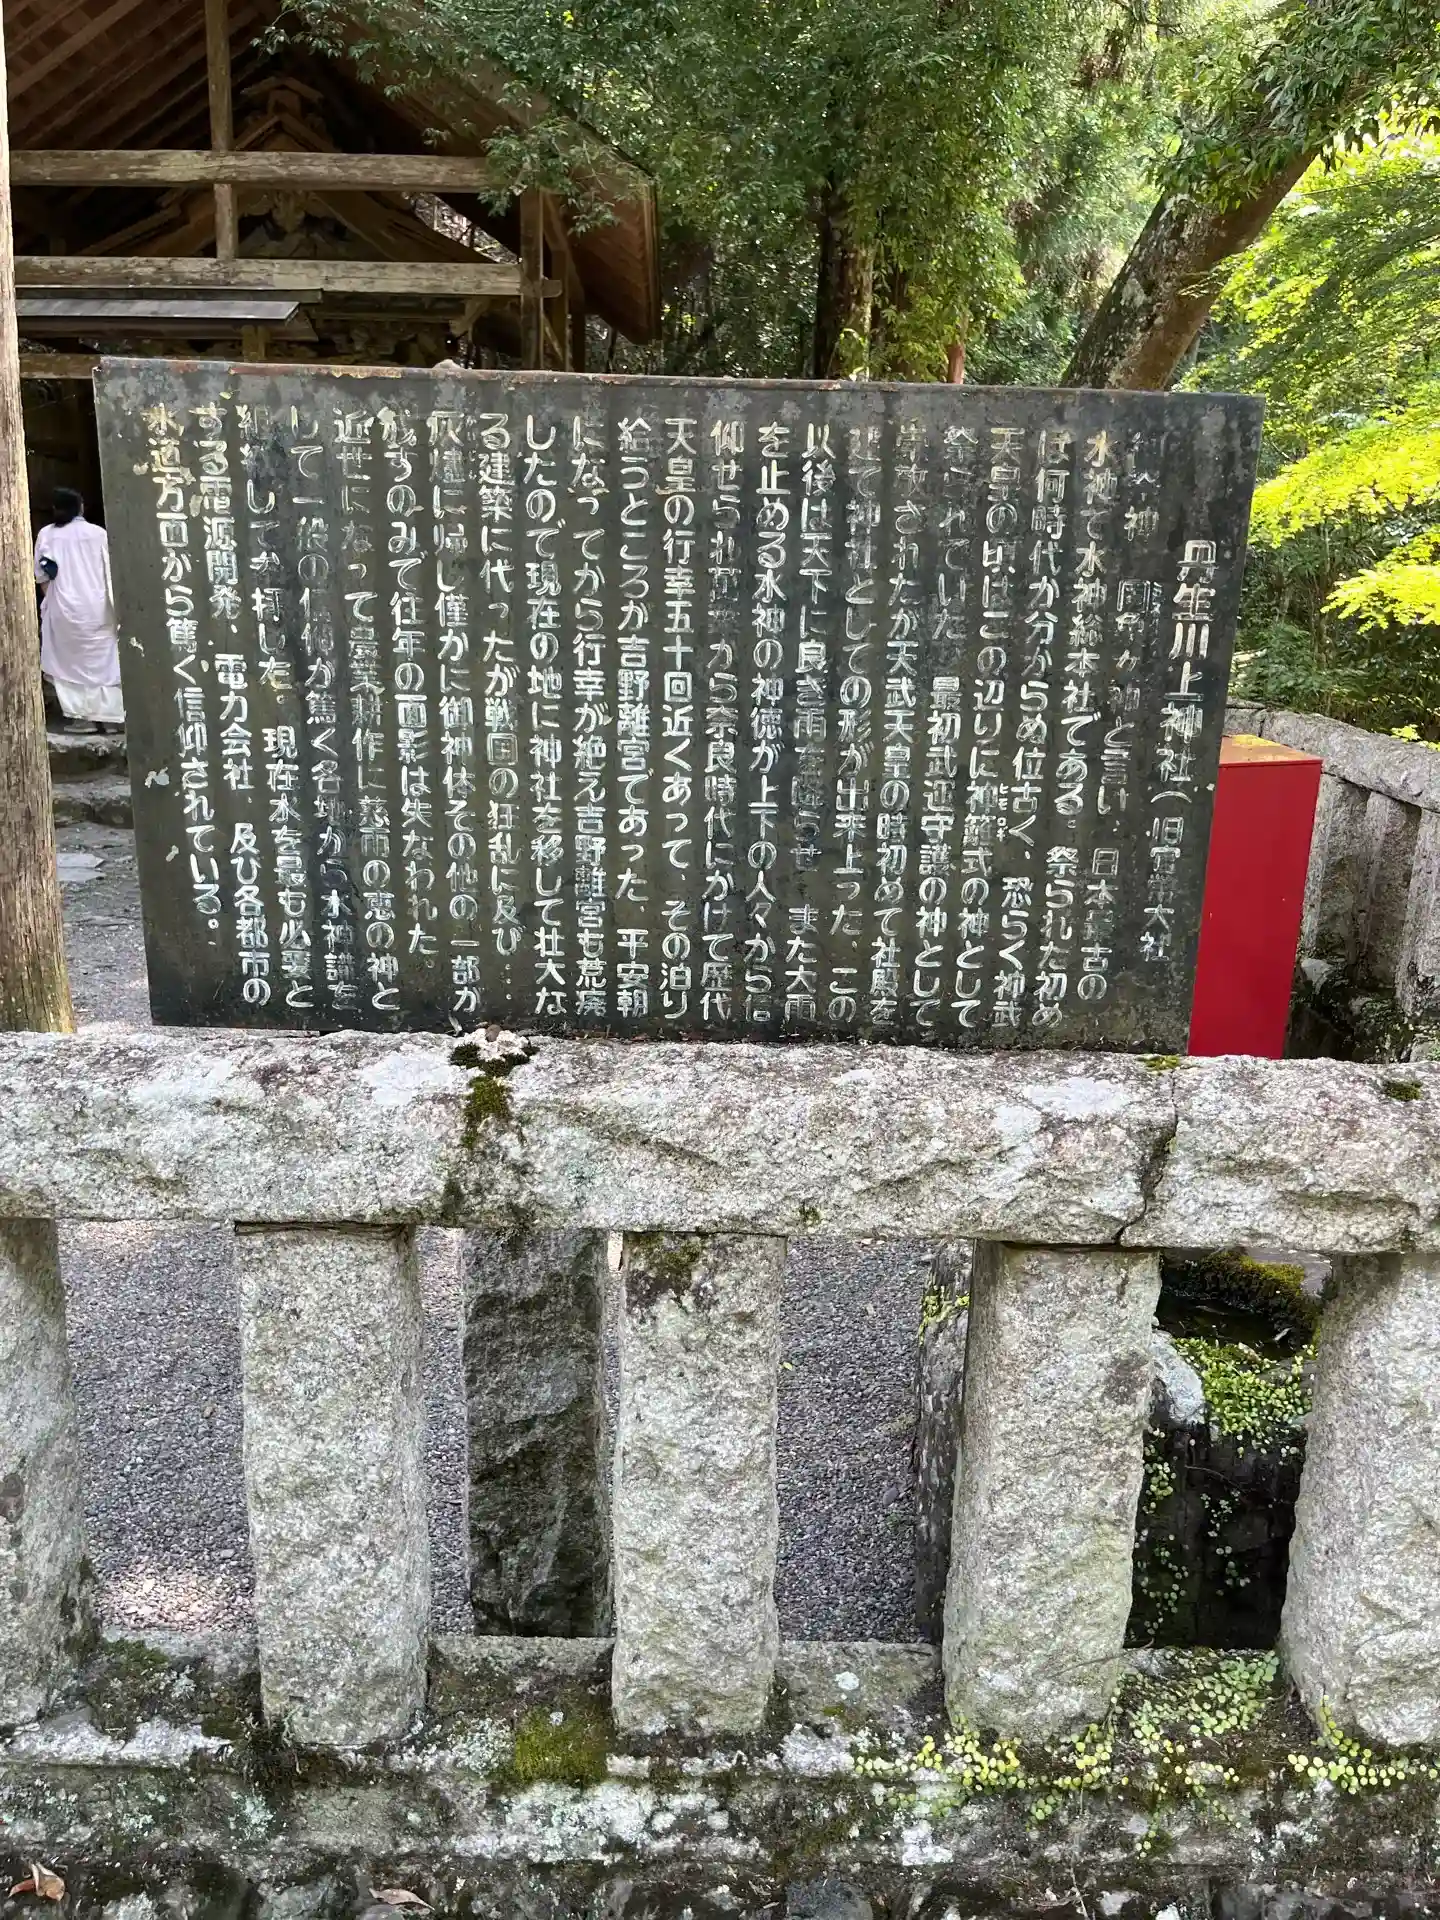 丹生川上神社(旧官幣大社)
神 闇龗神と言い、日本最古の
水神で水神総本社である。祭られた初め
は何時代か分からぬ位古く、恐らく神武
天皇の頃はこの辺りに神籬式の神として
ヒモロギ
祭られていた。最初武迎守護の神として
放されたが天武天皇の時初めて社殿を
建て神社としての形が出来上った、この
以後は天下に良き雨を降らせ また大雨
を止める水神の神徳が上下の人々から信
仰せられ から奈良時代にかけて歴代
天皇の行幸五十回近くあって、その泊り
給うところが吉野離宮であった、平安朝
になってから行幸が絶え吉野離宮も荒廃
したので現在の地に神社を移して壮大な
る建築に代ったが戦国の狂乱に及び‥
灰燼に帰し僅かに御神体その他の一部が
残すのみで往年の面影は失なわれた。
近世になって農業耕作に慈雨の恵の神と
して一般の信仰が篤く各地から水神講を
組織してか打した。現在水を最も必要と
する電源開発、電力会社、及び各都市の
水道方面から篤く信仰されている。